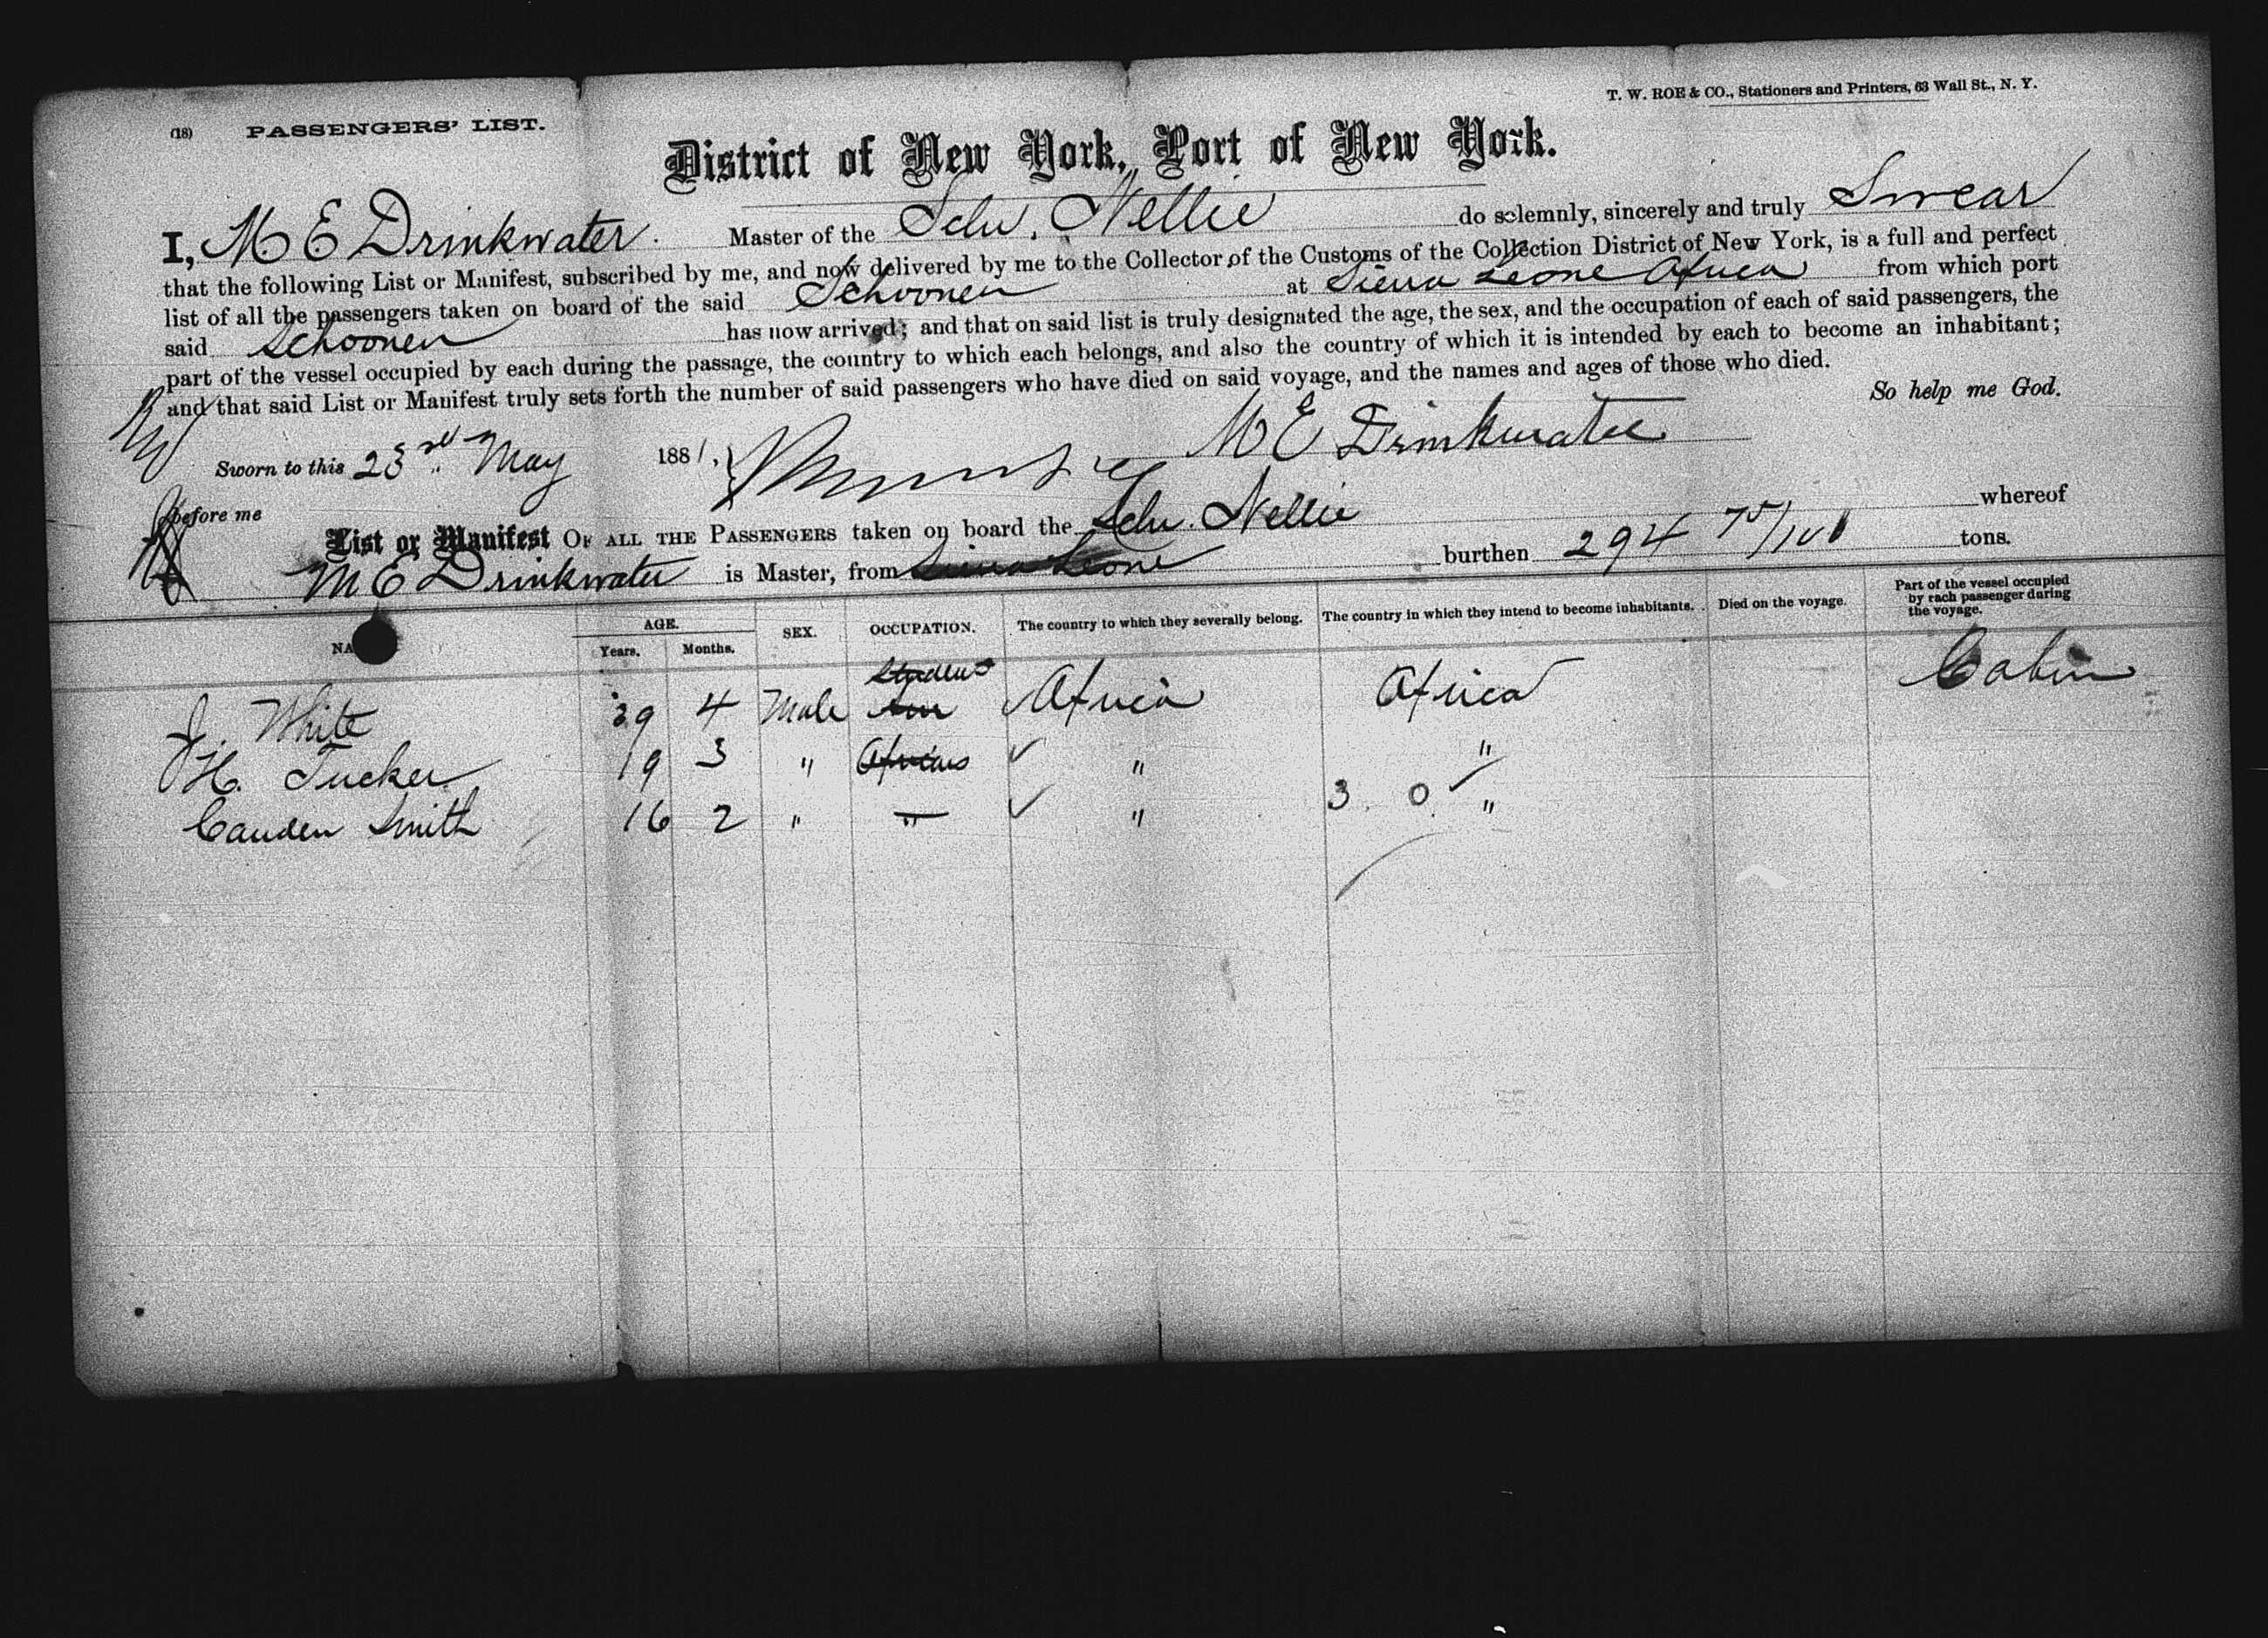 T. W. ROE & CO., Stationers and Printers, 63 Wall St., N. Y.
(18) PASSENGERS' LIST.
District of New York, Port of New York.
I, M E Drinkwater. Master of the Schr. Nellie do solemnly, sincerely and truly Swear
that the following List or Manifest, subscribed by me, and now delivered by me to the Collector of the Customs of the Collection District of New York, is a full and perfect
list of all the passengers taken on board of the said Schooner at Sierra Leone Africa from which port
said Schooner has now arrived; and that on said list is truly designated the age, the sex, and the occupation of each of said passengers, the
part of the vessel occupied by each during the passage, the country to which each belongs, and also the country of which it is intended by each to become an inhabitant;
and that said List or Manifest truly sets forth the number of said passengers who have died on said voyage, and the names and ages of those who died.
So help me God.
Sworn to this 23rd May 1881, M E Drinkwater
before me
List or Manifest OF ALL THE PASSENGERS taken on board the Schr. Nellie whereof
M E Drinkwater is Master, from Sierra Leone burthen 294 75/100 tons.
NA AGE. Years. Months. SEX. OCCUPATION. The country to which they severally belong. The country in which they intend to become inhabitants. Died on the voyage. Part of the vessel occupied by each passenger during the voyage.
J. White 39 4 Male Student Africa Africa Cabin
H. Tucker 19 3 " " "
Camden Smith 16 2 " " " 3 0 "